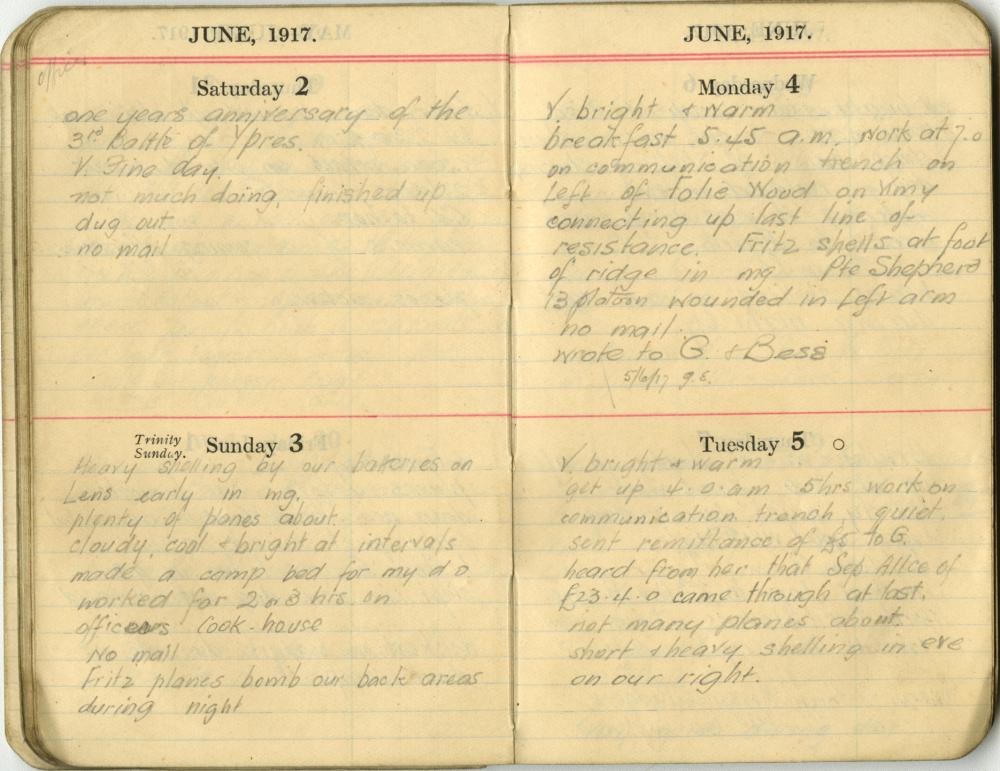 JUNE, 1917.
offices
Saturday 2
one years anniversary of the
3rd Battle of Ypres.
V. Fine day.
not much doing, finished up
dug out.
no mail
Trinity
Sunday.
Sunday 3
Heavy shelling by our batteries on
Lens early in mg.
plenty of planes about.
cloudy, cool & bright at intervals
made a camp bed for my d o.
worked for 2 or 3 hrs on
officers Cook-house
No mail
Fritz planes bomb our back areas
during night
JUNE, 1917.
Monday 4
V. bright & warm
breakfast 5.45 a.m. Work at 7.0
on communication trench on
Left of Folie Wood on Vimy
connecting up last line of
resistance. Fritz shells at foot
of ridge in mg Pte Shepherd
13 platoon wounded in Left arm
no mail.
wrote to G. & Bess
5/6/17 g.s.
Tuesday 5
V. bright & warm
get up 4.0.am 5hrs work on
communication trench, quiet.
sent remittance of £5 to G.
heard from her that Sep Allce of
£23.4.0 came through at last.
not many planes about.
short & heavy shelling in eve
on our right.